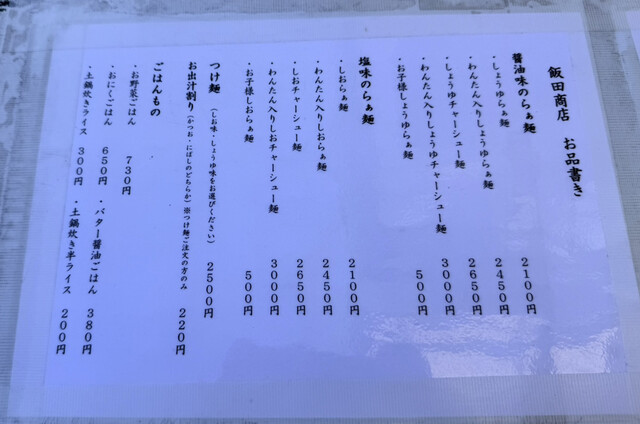 飯田商店　お品書き
醤油味のらぁ麺
・しょうゆらぁ麺　2100円
・わんたん入りしょうゆらぁ麺　2450円
・しょうゆチャーシュー麺　2650円
・わんたん入りしょうゆチャーシュー麺　3000円
・お子様しょうゆらぁ麺　500円
塩味のらぁ麺
・しおらぁ麺　2100円
・わんたん入りしおらぁ麺　2450円
・しおチャーシュー麺　2650円
・わんたん入りしおチャーシュー麺　3000円
・お子様しおらぁ麺　500円
つけ麺　(しお味・しょうゆ味をお選びください)　2500円
お出汁割り　(かつお・にぼしのどちらか)※つけ麺ご注文の方のみ　220円
ごはんもの
・お野菜ごはん　730円
・おにくごはん　650円　・バター醤油ごはん　380円
・土鍋炊きライス　300円　・土鍋炊き半ライス　200円